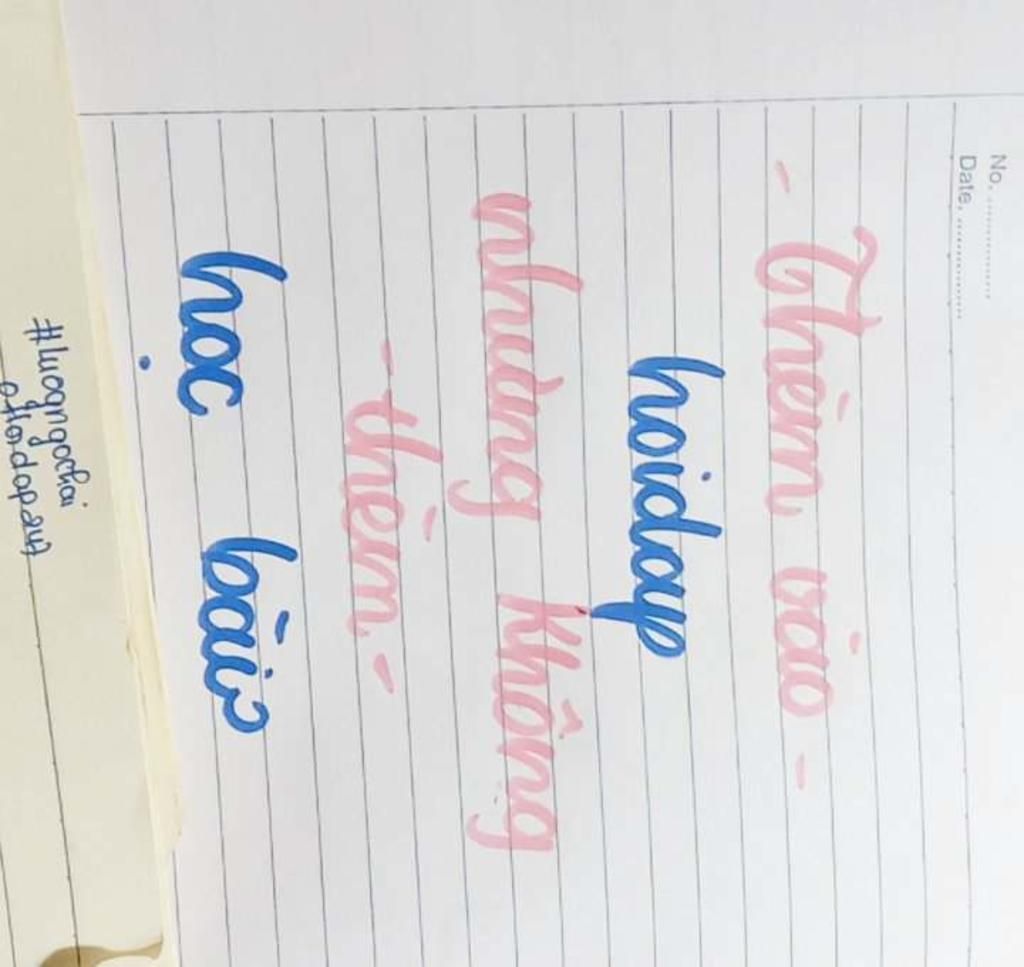 No. ............
Date. ............
- Thèm vào -
hoidap
nhưng không
- thèm -
học bài